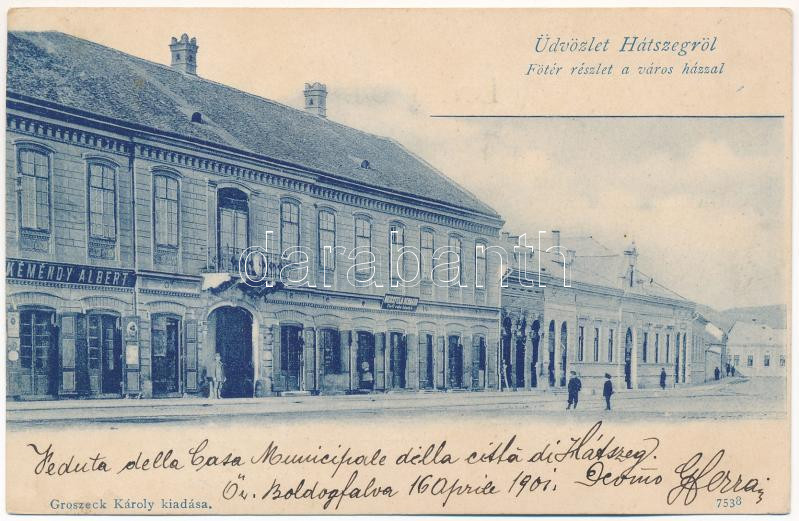 Üdvözlet Hátszegröl
Főtér részlet a város házzal
KEMÉNDY ALBERT
darabanth
Veduta della Casa Municipale della città di Hátszeg.
Őr. Boldogfalva 16 Aprile 1901.
Groszeck Károly kiadása.
7538